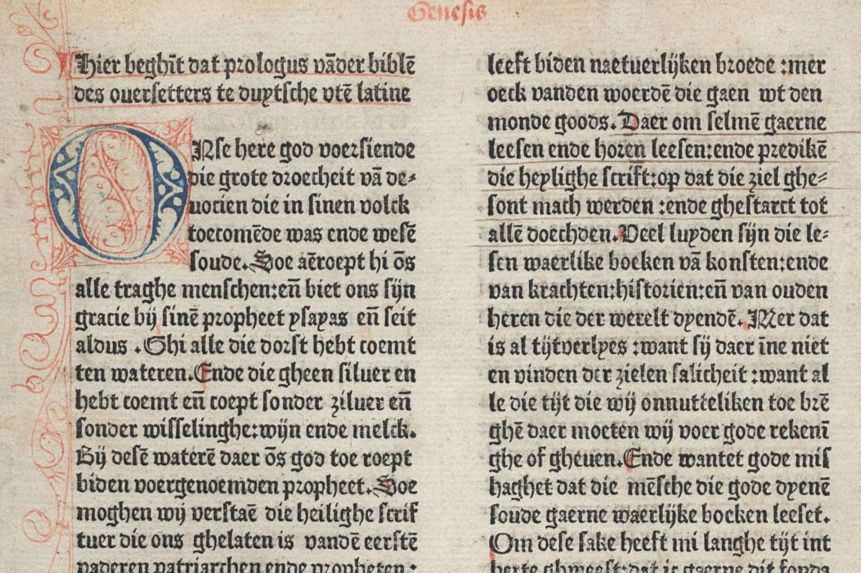 Genesis
Hier beghĩt dat prologus vãder biblẽ
des ouersetters te duytsche vtẽ latine
ONse here god voersiende
die grote droecheit vã de⸗
uocien die in sinen volck
toecomẽde was ende wesẽ
soude. Soe aẽroept hi õs
alle traghe menschen:eñ biet ons sijn
gracie bij sinẽ propheet ysayas eñ seit
aldus .Ghi alle die dorst hebt coemt
ten wateren.Ende die gheen siluer en
hebt coemt eñ coept sonder ziluer eñ
sonder wisselinghe:wijn ende melck.
Bij desẽ waterẽ daer õs god toe roept
biden voergenoemden propheet.Soe
moghen wij verstaẽ die heilighe scrif
tuer die ons ghelaten is vandẽ eerstẽ
vaderen patriarchen ende propheten :
leeft biden naetuerlijken broede :mer
oeck vanden woerdẽ die gaen wt den
monde goods.Daer om selmẽ gaerne
leesen ende horen leesen:ende predikẽ
die heylighe scrift:op dat die ziel ghe⸗
sont mach werden :ende ghestarct tot
allẽ doechden.Veel luyden sijn die le⸗
sen waerlike boeken vã konsten:ende
van krachten:historien:eñ van ouden
heren die der werelt dyendẽ.Mer dat
is al tijtverlyes :want sij daer ĩne niet
en vinden der zielen salicheit :want al
le die tijt die wij onnutteliken toe brẽ
ghẽ daer moeten wij voer gode rekenĩ
ghe of gheuen.Ende wantet gode mis
haghet dat die mẽsche die gode dyenẽ
soude gaerne waerlijke bocken leeset.
Om dese sake heeft mi langhe tijt int
herte ghweest:dat ic gaerne dit fonda